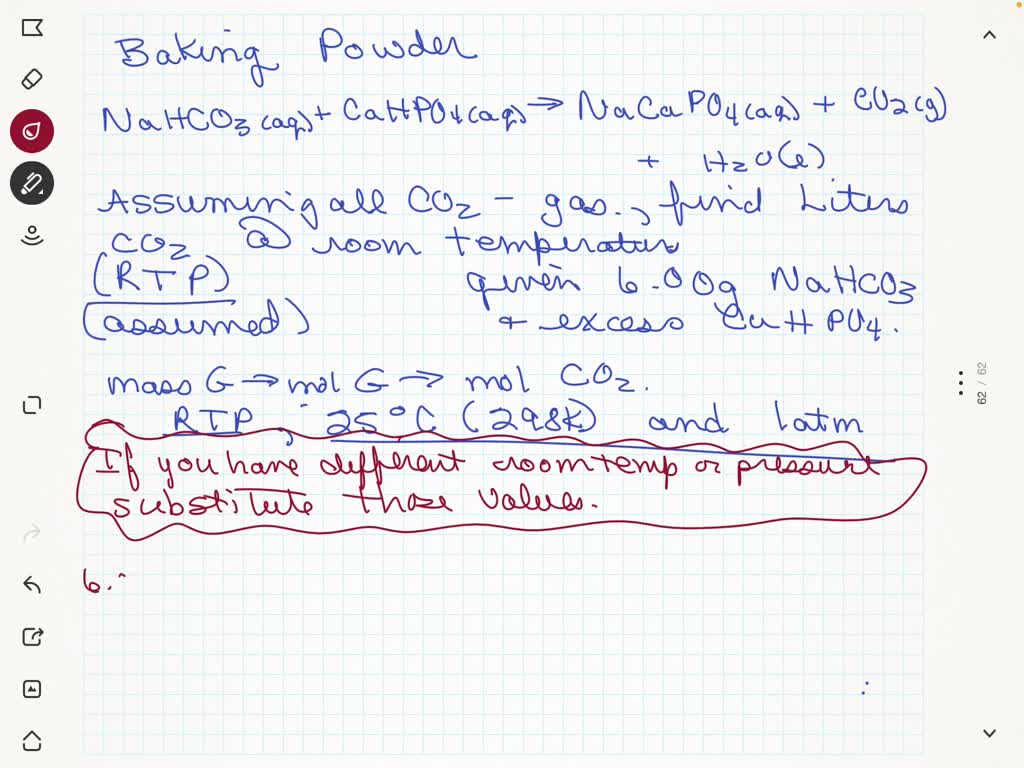 Baking Powder
NaHCO3(aq) + CaHPO4(aq) → NaCaPO4(aq) + CO2(g)
+ H2O(l)
Assuming all CO2 - gas., find Liters
CO2 @ room temperature
(RTP) given 6.00g NaHCO3
(assumed) + excess CaHPO4.
mass G → mol G → mol CO2.
RTP, 25°C (298K) and 1atm
If you have different room temp or pressure
substitute those values.
6.
62 / 62